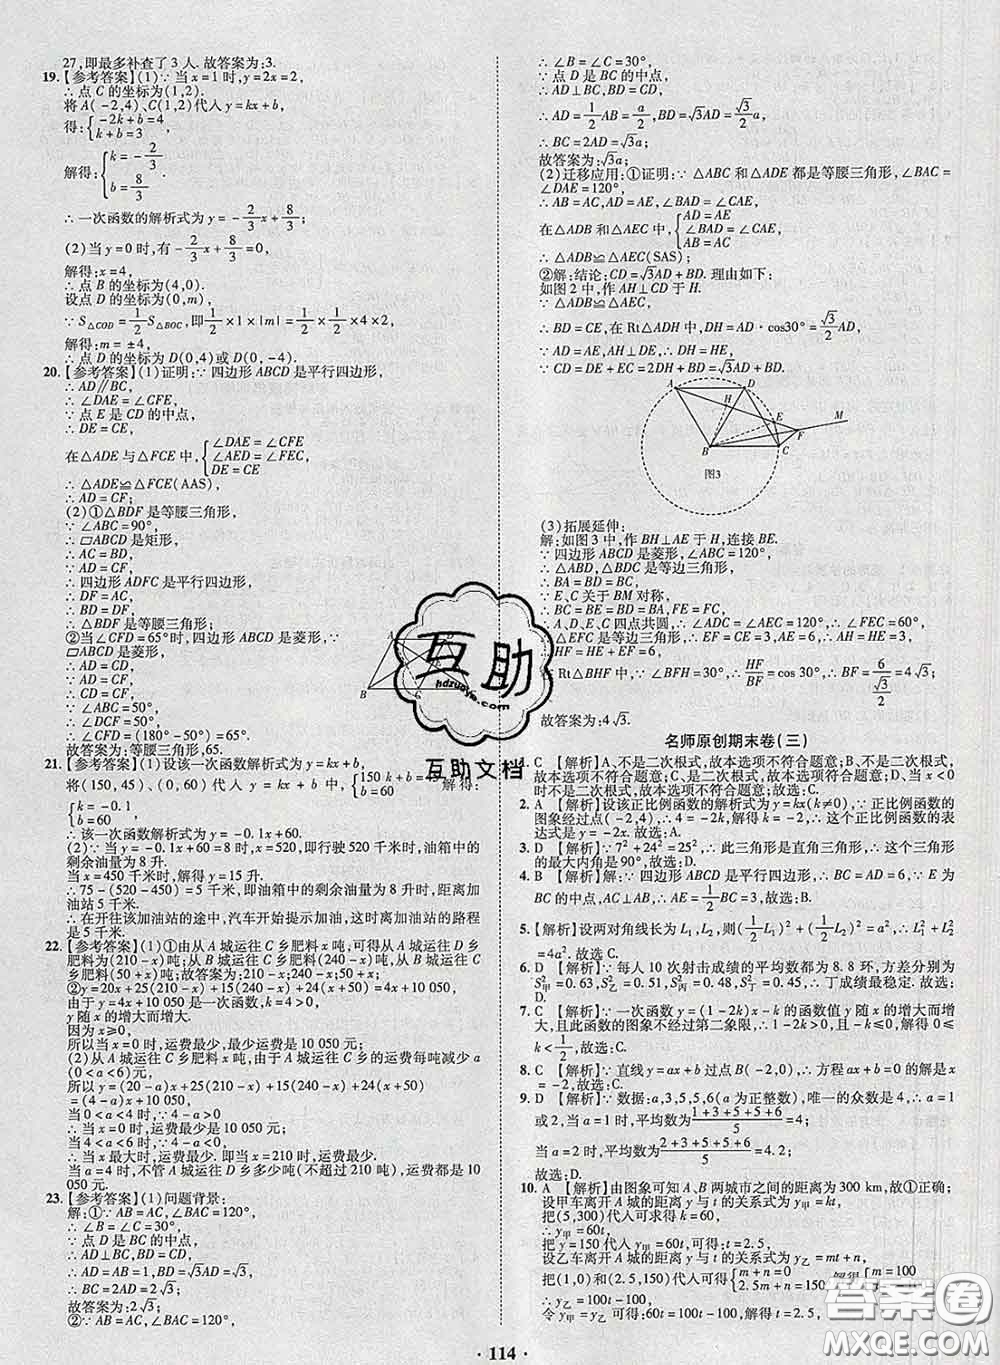 27,即最多补查了3人.故答案为:3.
19.【参考答案】(1)∵当x=1时,y=2x=2,
∴点C的坐标为(1,2).
将A(-2,4)、C(1,2)代入y=kx+b,
得:{-2k+b=4
k+b=3
解得:{k=-2/3
b=8/3
∴一次函数的解析式为y=-2/3x+8/3;
(2)当y=0时,有-2/3x+8/3=0,
解得:x=4,
∴点B的坐标为(4,0).
设点D的坐标为(0,m),
∵S△COD=1/2S△BOC,即1/2×1×|m|=1/2×1/2×4×2,
解得:m=±4.
∴点D的坐标为D(0,4)或D(0,-4).
20.【参考答案】(1)证明:∵四边形ABCD是平行四边形,
∴AD∥BC,
∴∠DAE=∠CFE,
∵点E是CD的中点,
∴DE=CE,
在△ADE与△FCE中,{∠DAE=∠CFE
∠AED=∠FEC,
DE=CE
∴△ADE≌△FCE(AAS),
∴AD=CF;
(2)①△BDF是等腰三角形,
∵∠ABC=90°,
∴▱ABCD是矩形,
∴AC=BD,
∵AD=CF,
∴四边形ADFC是平行四边形,
∴DF=AC,
∴DF=BD,
∴△BDF是等腰三角形;
②当∠CFD=65°时,四边形ABCD是菱形,∵
▱ABCD是菱形,
∴BC=CD,
∵AD=CF,
∴CD=CF,
∵∠ABC=50°,
∴∠DCF=50°,
∴∠CFD=(180°-50°)=65°.
故答案为:等腰三角形,65.
21.【参考答案】(1)设该一次函数解析式为y=kx+b,
将(150,45)、(0,60)代入y=kx+b中,{150k+b=45
b=60
解得:
{k=-0.1
b=60
∴该一次函数解析式为y=-0.1x+60.
(2)∵当y=-0.1x+60=8时,解得x=520,即行驶520千米时,油箱中的
剩余油量为8升.
当x=450时,解得y=15升.
∴75-(520-450)=5千米,即油箱中的剩余油量为8升时,距离加
油站5千米.
∴在开往该加油站的途中,汽车开始提示加油,这时离加油站的路程
是5千米.
22.【参考答案】(1)①由从A城运往C乡肥料x吨,可得从A城运往D乡
肥料为(210-x)吨,从B城运往C乡肥料为(240-x)吨,运往D乡
肥料为(50+x)吨;故答案为:210-x;240-x;50+x;
②y=20x+25(210-x)+15(240-x)+24(x+50)=4x+10050
由于y=4x+10050是一次函数,k=4>0,
y随x的增大而增大.
因为x≥0,
所以当x=0时,运费最少,最少运费是10050元.
(2)从A城运往C乡肥料x吨,由于A城运往C乡的运费每吨减少a
(0<a<6)元,
所以y=(20-a)x+25(210-x)+15(240-x)+24(x+50)
=(4-a)x+10050
当0<a<4时,∵4-a>0
∴当x=0时,运费最少是10050元;
当4<a<6时,∵4-a<0
∴当x最大时,运费最少.即当x=210时,运费最少.
当a=4时,不管A城运往D乡多少吨(不超过210吨),运费都是10
050元.
23.【参考答案】(1)问题背景:
解:①∵AB=AC,∠BAC=120°,
∴∠B=30°,
∵点D是BC的中点,
∴AD⊥BC,BD=CD,
∴AD=AB=1,BD=√3AD=√3,
∴BC=2BD=2√3,
故答案为:2√3;
②∵AB=AC,∠BAC=120°,
∴∠B=∠C=30°,
∵点D是BC的中点,
∴AD⊥BC,BD=CD,
∴AD=1/2AB=a/2,BD=√3AD=√3/2a,
∴BC=2AD=√3a;
故答案为:√3a;
(2)迁移应用:①证明:∵△ABC和△ADE都是等腰三角形,∠BAC=
∠DAE=120°,
∴AB=AC,AD=AE,∠BAD=∠CAE,
在△ADB和△AEC中,{AD=AE
∠BAD=∠CAE,
AB=AC
∴△ADB≌△AEC(SAS);
②解:结论:CD=√3AD+BD.理由如下:
如图2中,作AH⊥CD于H.
∵△ADB≌△AEC,
∴BD=CE,在Rt△ADH中,DH=AD·cos30°=√3/2AD,
∵AD=AE,AH⊥DE,∴DH=HE,
∵CD=DE+CE=2DH+BD=√3AD+BD.
A D H E M F B C
图3
(3)拓展延伸:
解:如图3中,作BH⊥AE于H,连接BE.
∵四边形ABCD是菱形,∠ABC=120°,
∴△ABD,△BDC是等边三角形,
∴BA=BD=BC,
∵E、C关于BM对称,
∴A、D、E、C四点共圆,∴∠ADC=∠AEC=120°,
∴△EFC是等边三角形,∴EF=CE=3,∴AH=HE=3,
HF=HE+EF=6,
在Rt△BHF中,∵∠BFH=30°,∴HF/BF=cos30°,∴BF=6/(√3/2)=4√3,
故答案为:4√3.
名师原创期末卷(三)
1. C 【解析】A、不是二次根式,故本选项不符合题意;B、不是二次根式,
故本选项不符合题意;C、是二次根式,故本选项符合题意;D、当x<0
时不是二次根式,故本选项不符合题意;故选:C.
2. A 【解析】设该正比例函数的解析式为y=kx(k≠0),∵正比例函数的
图象经过点(-2,4),∴4=-2k,解得k=-2,∴这个正比例函数的表
达式是y=-2x.故选:A.
3. D 【解析】∵7²+24²=25²,∴此三角形是直角三角形,∴这个三角形
的最大内角是90°,故选:D.
4. B 【解析】解:∵四边形ABCD是平行四边形,∴BC=AD=6,∵E为
BC的中点,AC⊥AB,∴AE=1/2BC=3,故选:B.
5. 【解析】设两对角线长为L₁,L₂,则(1/2L₁)²+(1/2L₂)²=a²,∴L₁²+L₂²
=4a².故选:C.
6. D 【解析】∵每人10次射击成绩的平均数都为8.8环,方差分别为
S²甲=0.63,S²乙=0.51,S²丙=0.48,S²丁=0.45,∴丁成绩最稳定.故选:
D.
7. C 【解析】∵一次函数y=(1-2k)x-k的函数值y随x的增大而增
大,且此函数的图象不经过第二象限,∴1-2k>0,且-k≤0,解得0
≤k<1/2,故选:C.
8. C 【解析】∵直线y=ax+b过点B(-2,0),∴方程ax+b=0的解是
x=-2,故选:C.
9. D 【解析】∵数据:a,3,5,5,6(a为正整数),唯一的众数是4,∴a=1
或2,当a=1时,平均数为(1+3+5+5+6)/5=4;
当a=2时,平均数为(2+3+5+5+6)/5=4.2;
故选:D.
10. A 【解析】由图象可知A、B两城市之间的距离为300km,故①正确;
设甲车离开A城的距离y与t的关系式为y甲=kt,
把(5,300)代入可求得k=60,
∴y甲=60t,
把y=150代入y甲=60t,可得:t=2.5,
设乙车离开A城的距离y与t的关系式为y乙=mt+n,
把(1,0)和(2.5,150)代入可得{m+n=0
2.5m+n=150,解得{m=100
∴y乙=100t-100,
令y甲=y乙可得:60t=100t-100,解得t=2.5,
·114·
互助
hdzuoye.com
互助文档
答案圈
MXQE.COM